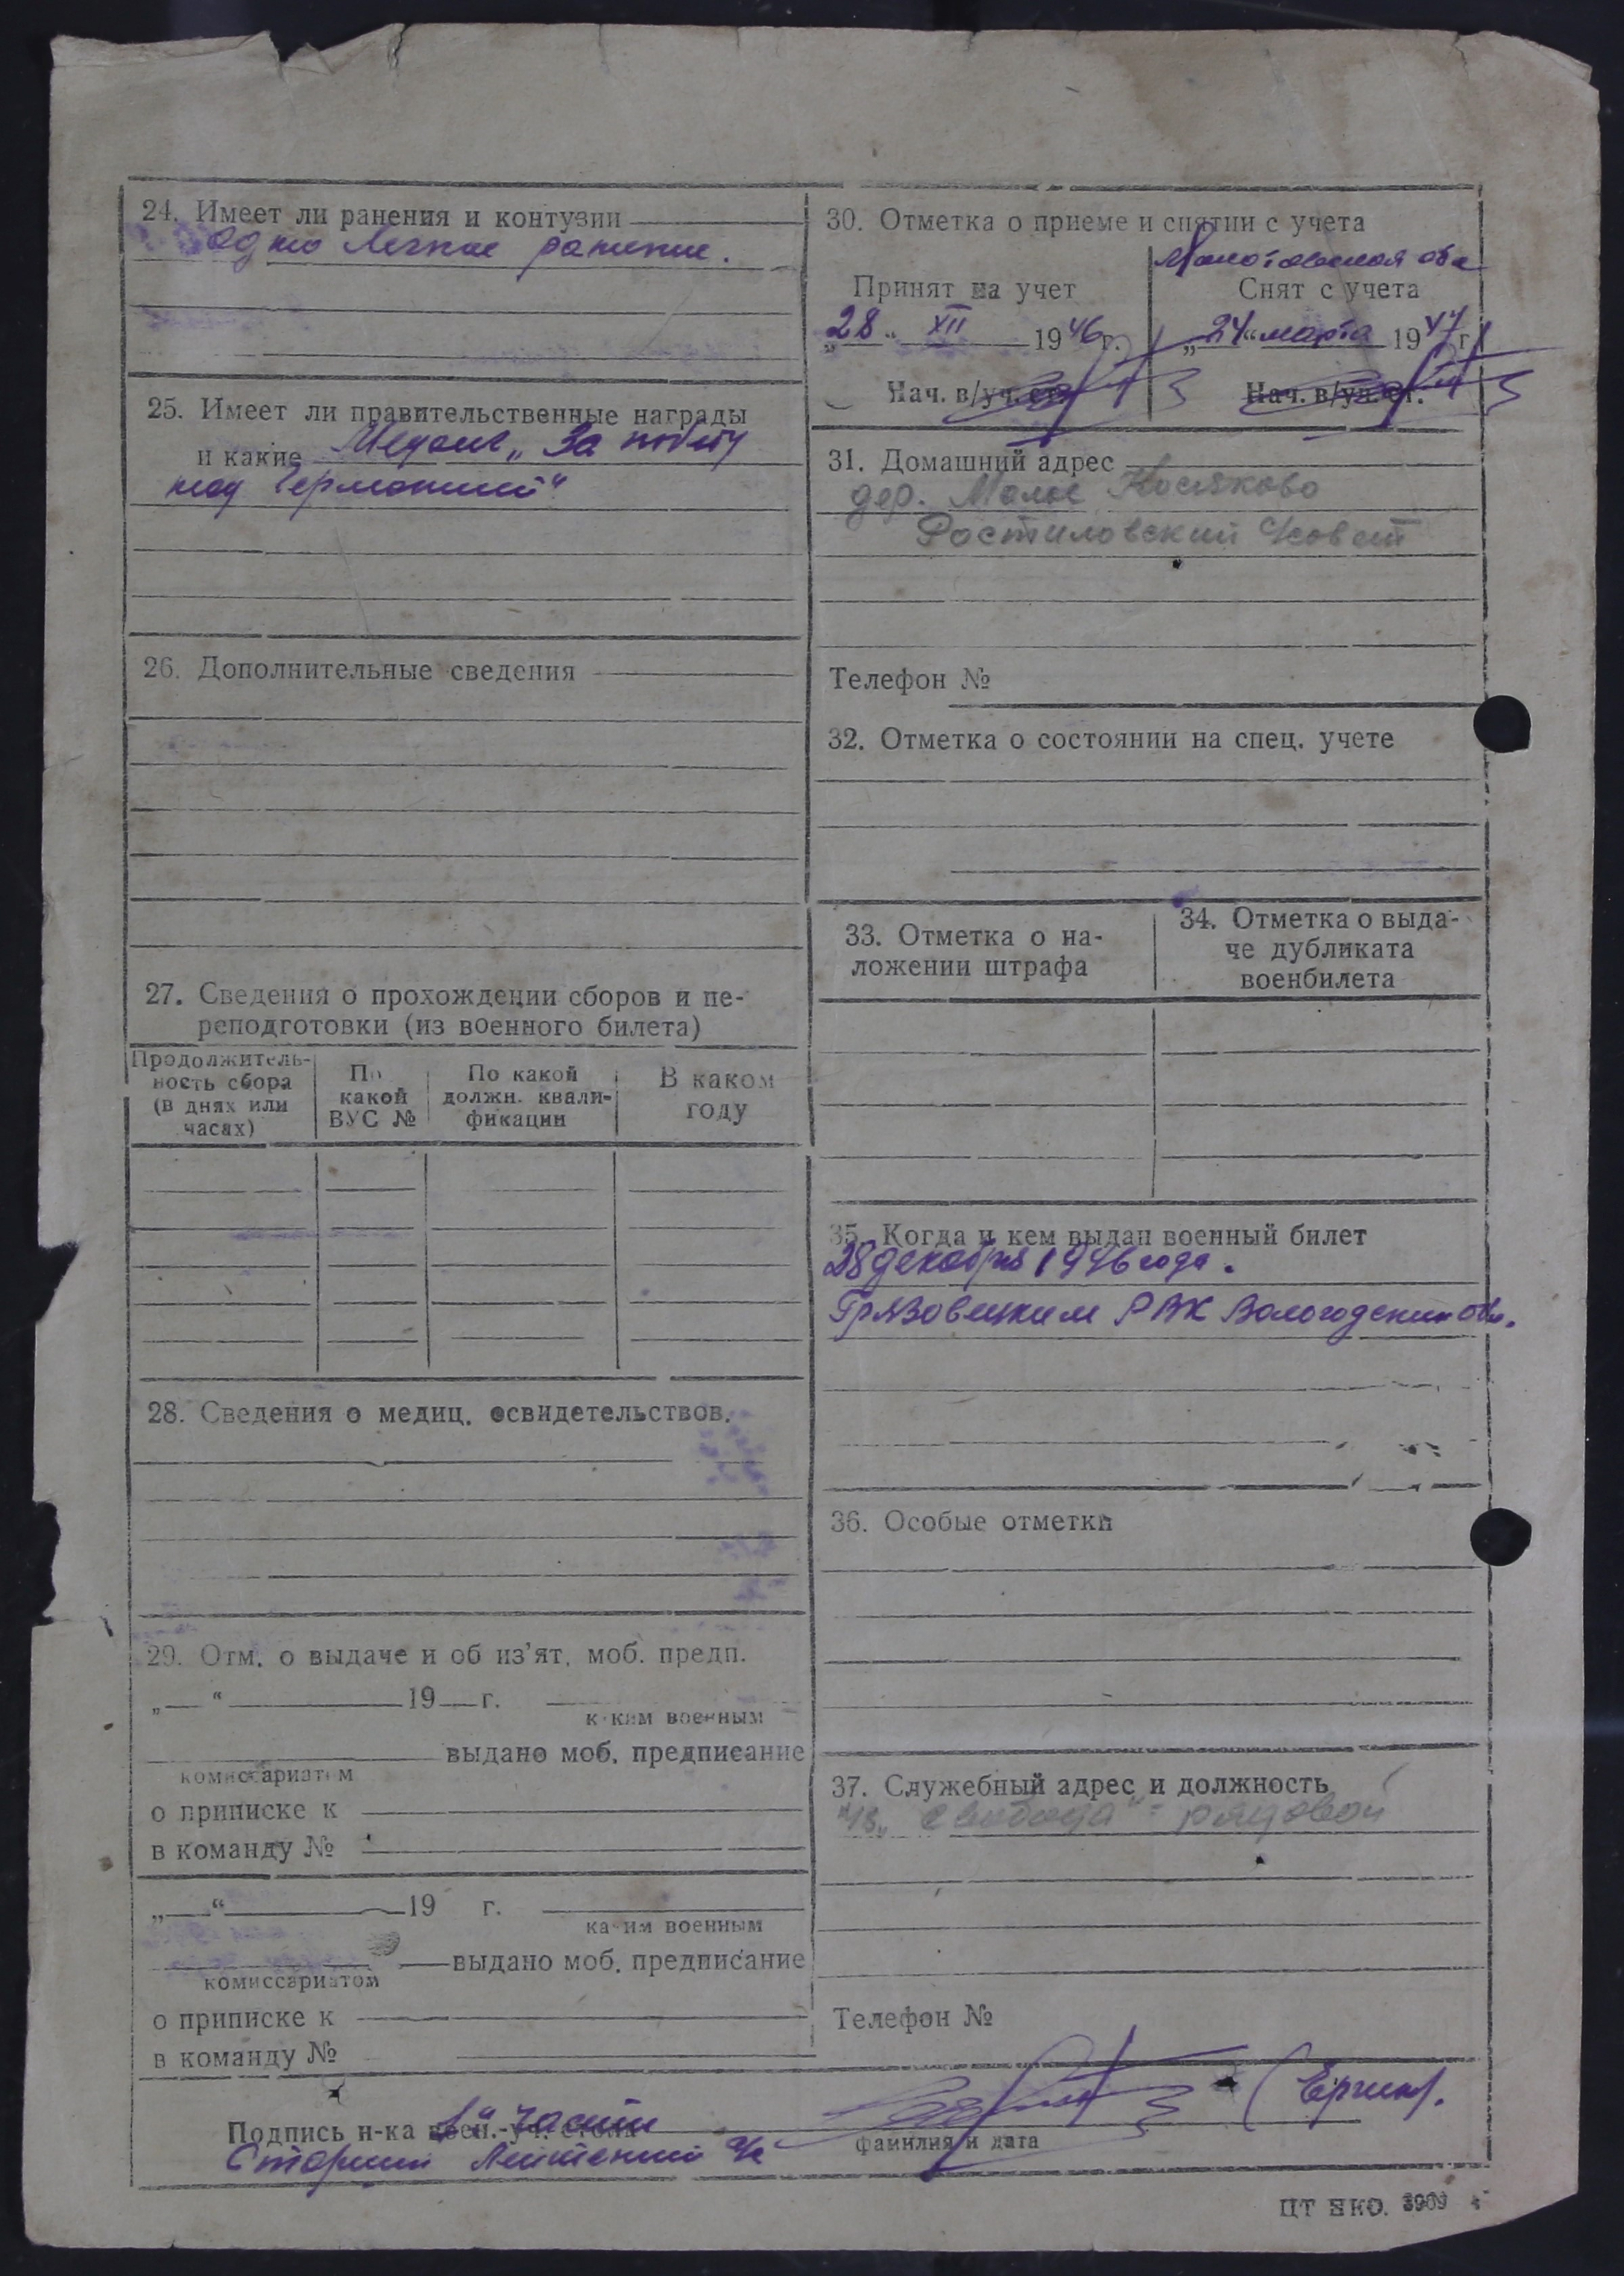 24. Имеет ли ранения и контузии
одно легкое ранение.
25. Имеет ли правительственные награды
и какие Медаль „За победу
над Германией“
26. Дополнительные сведения
27. Сведения о прохождении сборов и пе-
реподготовки (из военного билета)
Продолжитель-
ность сбора
(в днях или
часах)
По
какой
ВУС №
По какой
должн. квали-
фикации
В каком
году
28. Сведения о медиц. освидетельствов.
29. Отм. о выдаче и об из'ят. моб. предп.
„ “ 19 г.
каким военным
выдано моб. предписание
комиссариатом
о приписке к
в команду №
„ “ 19 г.
каким военным
выдано моб. предписание
комиссариатом
о приписке к
в команду №
30. Отметка о приеме и снятии с учета
Принят на учет
„28“ XII 1946 г.
Нач. в/уч. ст.
Молотовская обл
Снят с учета
„24“ марта 1947 г.
Нач. в/уч. ст.
31. Домашний адрес
дер. Малое Косяково
Ростиловский с/совет
Телефон №
32. Отметка о состоянии на спец. учете
33. Отметка о на-
ложении штрафа
34. Отметка о выда-
че дубликата
военбилета
35. Когда и кем выдан военный билет
28 декабря 1946 года.
Грязовецким РВК Вологодской обл.
36. Особые отметки
37. Служебный адрес и должность
к/з „Свобода“ - рядовой
Телефон №
Подпись н-ка воен.-уч. 1й части
Старший Лейтенант а/с
фамилия и дата
ЦТ НКО. 3909